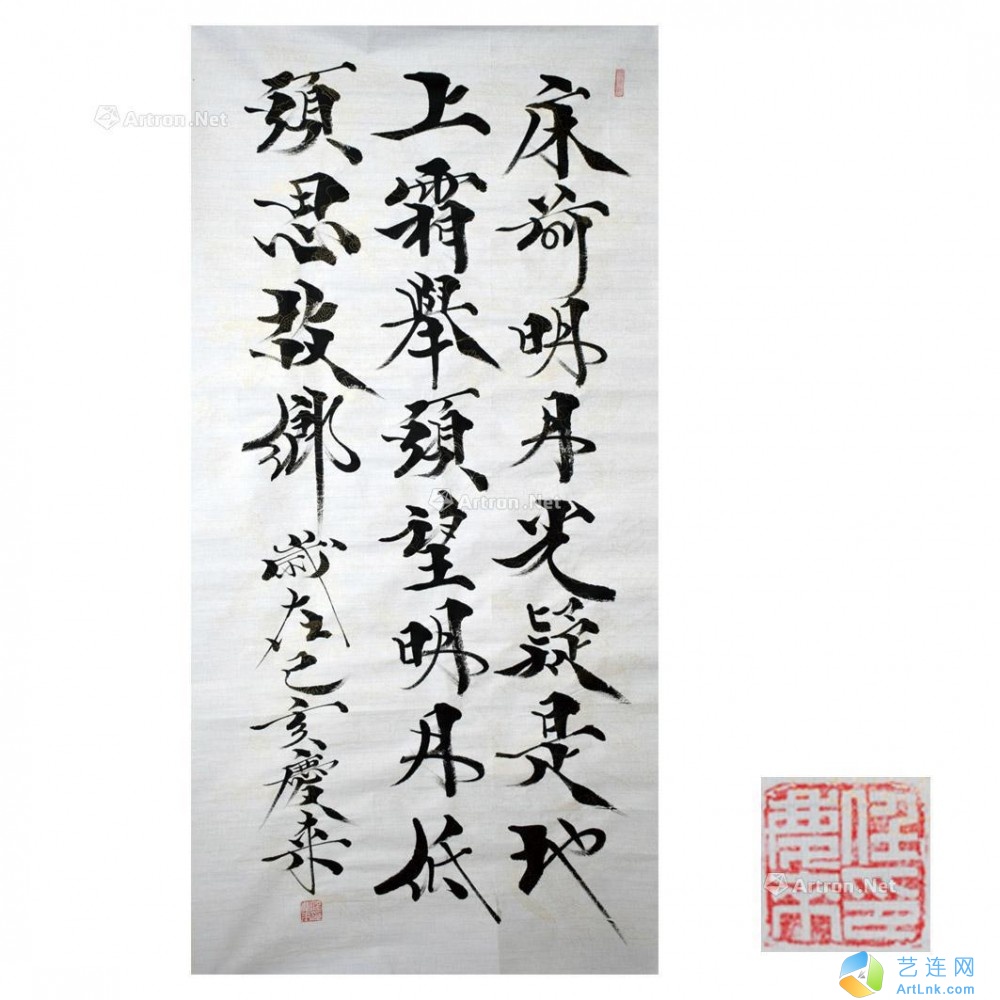 床前明月光疑是地
上霜舉頭望明月低
頭思故鄉
歲在己亥慶来
Artron.Net
Artron.Net
Artron.Net
艺连网
ArtLnk.com